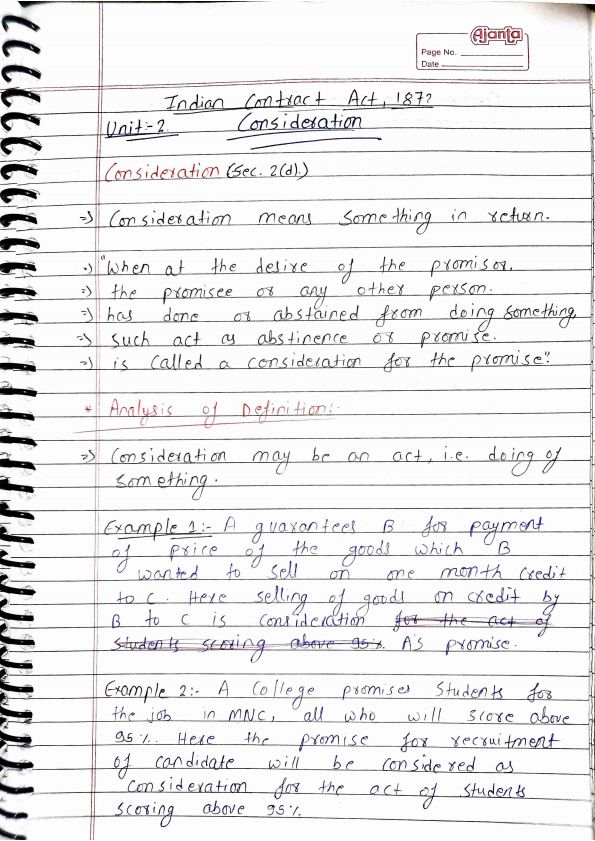 Ajanta
Page No.
Date
Indian Contract Act, 1872
Unit:-2. Consideration
Consideration (Sec. 2(d).)
=> Consideration means something in return.
=> "When at the desire of the promisor.
=> the promisee or any other person.
=> has done or abstained from doing something,
=> such act as abstinence or promise.
=> is called a consideration for the promise".
* Analysis of Definition:-
=> Consideration may be an act, i.e. doing of
something.
Example 1:- A guarantees B for payment
of price of the goods which B
wanted to sell on one month credit
to C. Here selling of goods on credit by
B to C is consideration for the act of
students scoring above 95%. A's promise.
Example 2:- A College promises students for
the job in MNC, all who will score above
95%. Here the promise for recruitment
of candidate will be considered as
consideration for the act of students
scoring above 95%